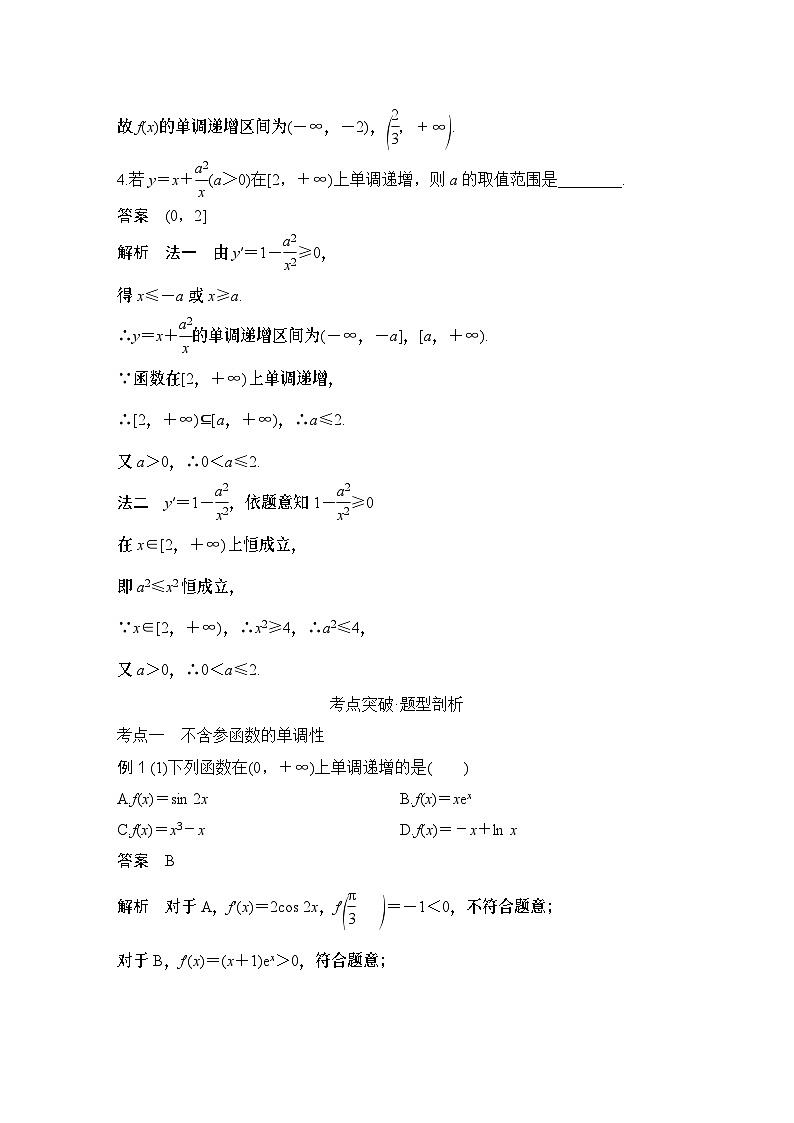 故 f(x)的单调递增区间为(－∞，－2)，(2/3，＋∞).
4.若 y＝x＋a²/x(a＞0)在[2，＋∞)上单调递增，则 a 的取值范围是________.
答案　(0，2]
解析　法一　由 y′＝1－a²/x²≥0，
得 x≤－a 或 x≥a.
∴y＝x＋a²/x的单调递增区间为(－∞，－a]，[a，＋∞).
∵函数在[2，＋∞)上单调递增，
∴[2，＋∞)⊆[a，＋∞)，∴a≤2.
又 a＞0，∴0＜a≤2.
法二　y′＝1－a²/x²，依题意知 1－a²/x²≥0
在 x∈[2，＋∞)上恒成立，
即 a²≤x² 恒成立，
∵x∈[2，＋∞)，∴x²≥4，∴a²≤4，
又 a＞0，∴0＜a≤2.
考点突破·题型剖析
考点一　不含参函数的单调性
例 1 (1)下列函数在(0，＋∞)上单调递增的是(　　)
A.f(x)＝sin 2x　　B.f(x)＝xeˣ
C.f(x)＝x³－x　　D.f(x)＝－x＋ln x
答案　B
解析　对于 A，f′(x)＝2cos 2x，f′(π/3)＝－1＜0，不符合题意；
对于 B，f′(x)＝(x＋1)eˣ＞0，符合题意；